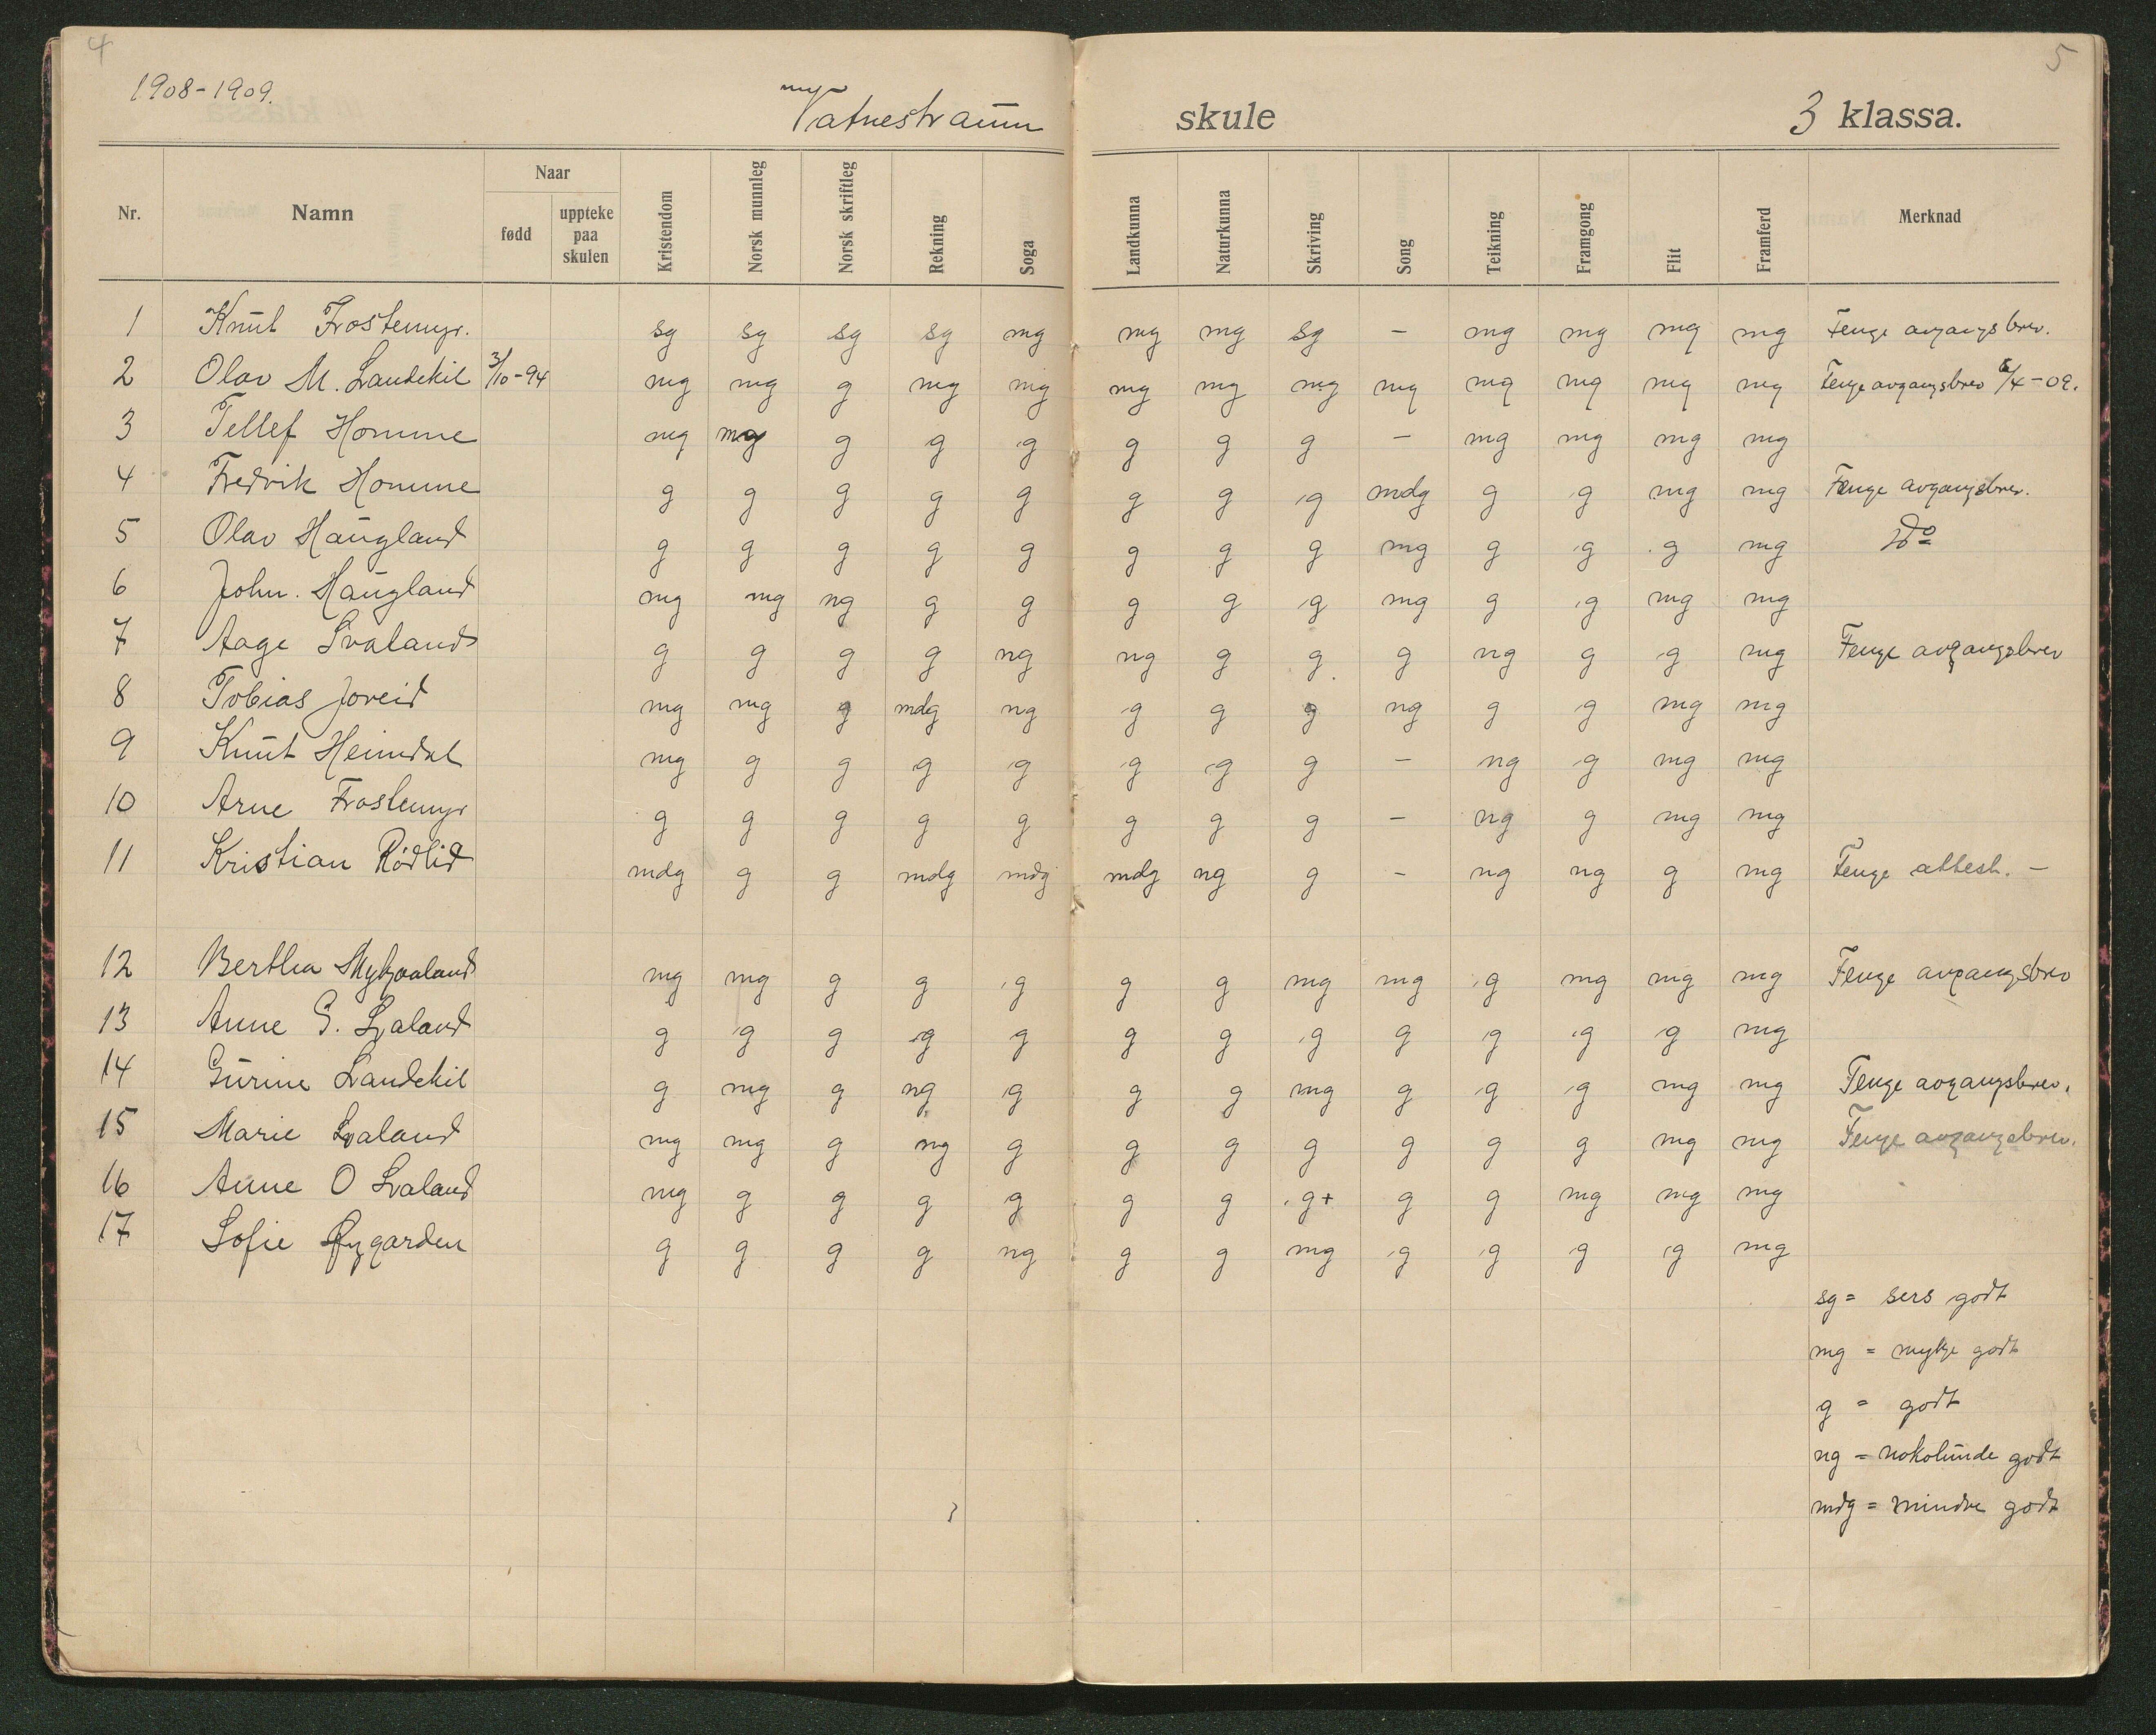 4
5
1908-1909.
Vatnestraum skule 3 klassa.
Nr. Namn Naar fødd uppteke paa skulen Kristendom Norsk munnleg Norsk skriftleg Rekning Soga Landkunna Naturkunna Skriving Song Teikning Framgong Flit Framferd Merknad
1 Knut Frostemyr. sg sg sg sg mg mg mg sg - mg mg mg mg Fenge avgangsbrev.
2 Olav M. Landekil 3/10-94 mg mg g mg mg mg mg mg mg mg mg mg mg Fenge avgangsbrev /4-09.
3 Tellef Homme mg mg g g g g g g - mg mg mg mg
4 Fredrik Homme g g g g g g g g mdg g g mg mg Fenge avgangsbrev.
5 Olav Haugland g g g g g g g g mg g g g mg Do
6 John. Haugland mg mg ng g g g g g mg g g mg mg
7 Aage Svaland g g g g ng ng g g g ng g g mg Fenge avgangsbrev
8 Tobias Joreid mg mg g mdg ng g g g ng g g mg mg
9 Knut Heimdal mg g g g g g g g - ng g mg mg
10 Arne Frostemyr g g g g g g g g - ng g mg mg
11 Kristian Rødlid mdg g g mdg mdg mdg ng g - ng ng g mg Fenge attest. -
12 Bertha Mykjaaland mg mg g g g g g mg mg g mg mg mg Fenge avgangsbrev
13 Anne G. Svaland g g g g g g g g g g g g mg
14 Gurine Landekil g mg g ng g g g mg g g g mg mg Fenge avgangsbrev.
15 Marie Svaland mg mg g ng g g g g g g g mg mg Fenge avgangsbrev.
16 Anne O Svaland mg g g g g g g g+ g g mg mg mg
17 Sofie Øygarden g g g g ng g g mg g g g g mg
sg = sers godt
mg = mykje godt
g = godt
ng = nokolunde godt
mdg = mindre godt